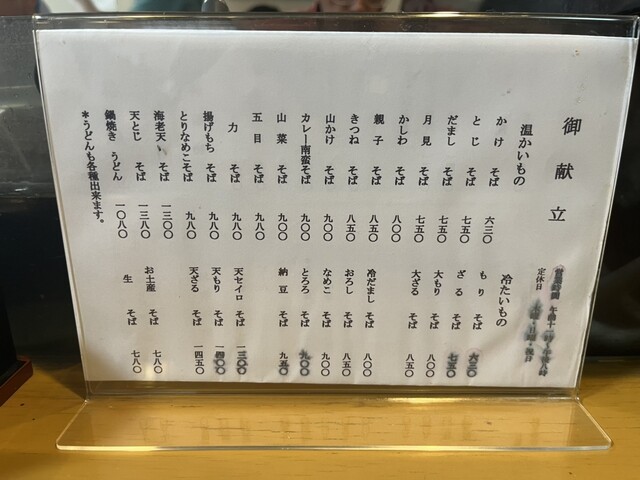 御献立
営業時間 午前十一時
定休日
温かいもの
かけ そば 六三〇
とじ そば 七五〇
だまし そば 七五〇
月見 そば 七五〇
かしわ そば 八〇〇
親子 そば 八五〇
きつね そば 八五〇
山かけ そば 九〇〇
カレー南蛮そば 九〇〇
山菜 そば 九〇〇
五目 そば 九八〇
力 そば 九八〇
揚げもち そば 九八〇
とりなめこそば 九八〇
海老天 そば 一三〇〇
天とじ そば 一三八〇
鍋焼き うどん 一〇八〇
*うどんも各種出来ます。
冷たいもの
もり そば 六三〇
ざる そば 七五〇
大もり そば 八〇〇
大ざる そば 八五〇
冷だまし そば 八〇〇
おろし そば 八五〇
なめこ そば 九〇〇
とろろ そば 九〇〇
納豆 そば 九五〇
天セイロ そば 一三〇〇
天もり そば 一四〇〇
天ざる そば 一四五〇
お土産 そば 七八〇
生 そば 七八〇